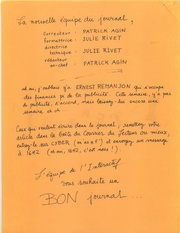 La nouvelle équipe du journal,
correcteur PATRICK AGIN
formatrice: JULIE RIVET
directrice
technique: JULIE RIVET
rédacteur
en-chef: PATRICK AGIN
et oui, j'oubliais ERNEST REMANJON qui s'occupe
des finances de la publicité. Cette semaine, y'a pas
de publicité, d'accord, mais laissez-lui encore une
semaine et
Ceux qui veulent écrire dans le journal, remettez votre
article dans la Boîte du Courrier du Lecteur ou mieux,
entrez-le sur CYBER et envoyez, en message
à 1642 (et oui, 1642, c'est nous!)
L'équipe de l'Interactif
vous souhaite un
BON journal...